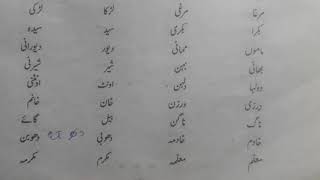 مرغا مرغی لڑکا لڑکی
بکرا بکری سید سیدہ
ماموں ممانی دیور دیورانی
بھائی بہن شیر شیرنی
دولہا دلہن اونٹ اونٹنی
درزی درزن خان خانم
ناگ ناگن بیل گائے
خادم خادمہ دھوبی دھوبن
معلم معلمہ مکرم مکرمہ